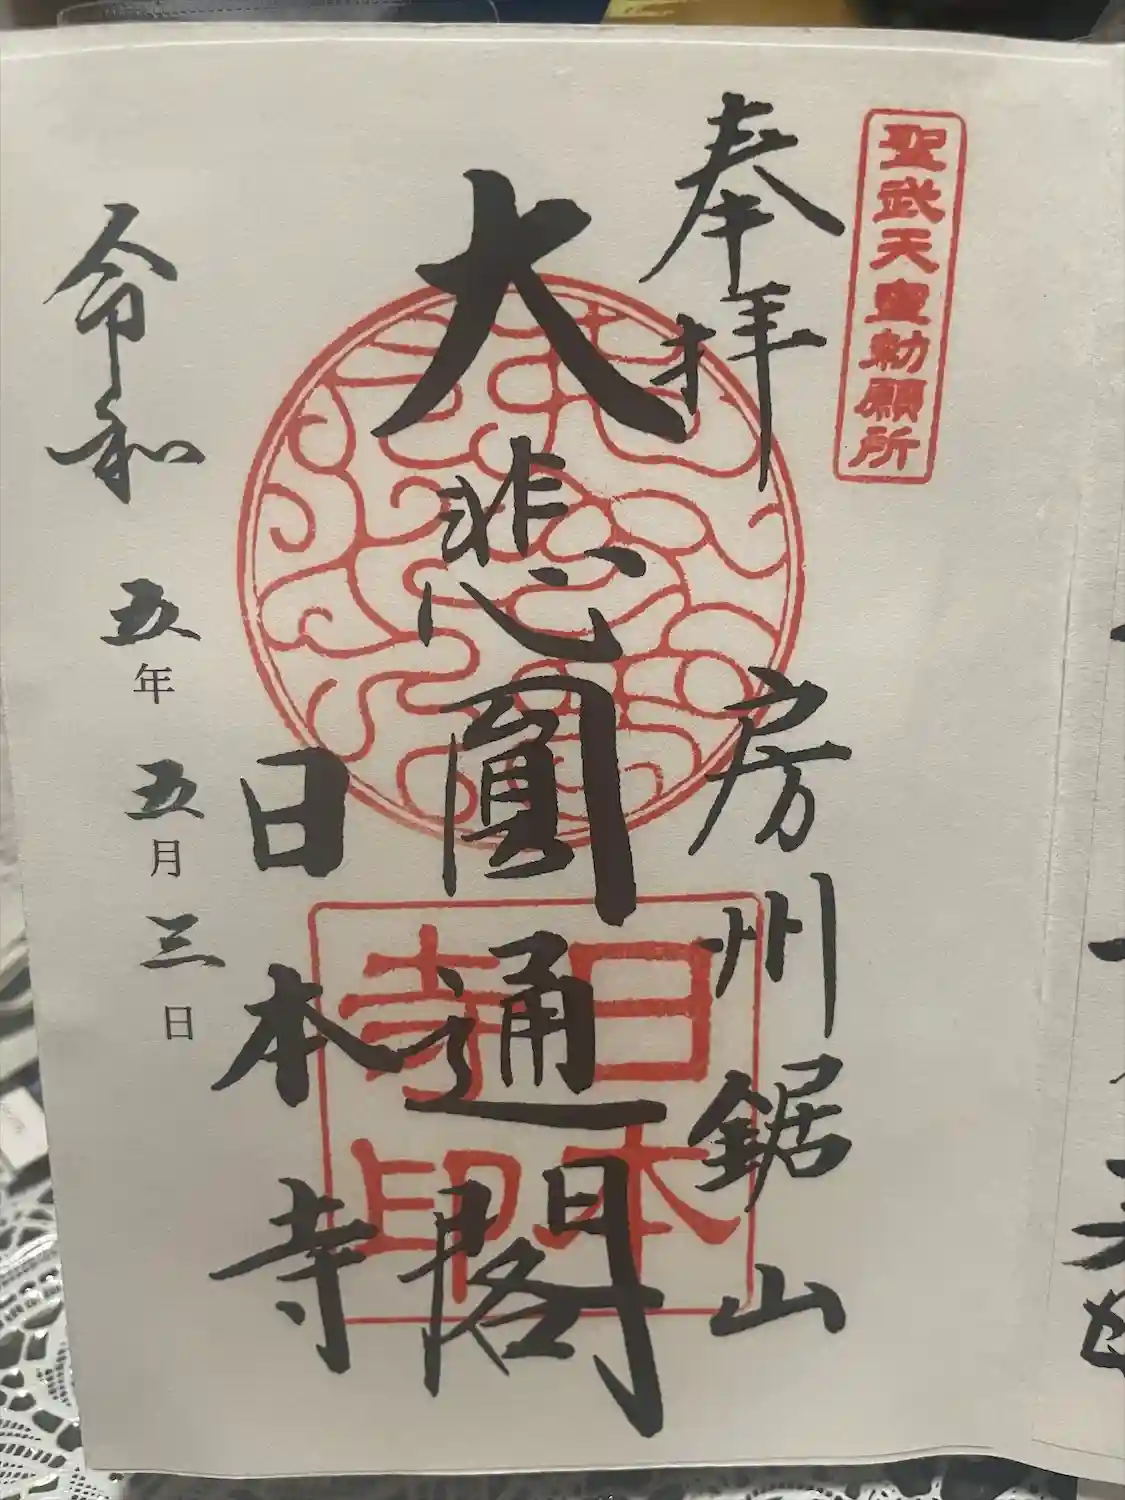 聖武天皇勅願所
奉拝
房州鋸山
大悲圓通閣
日本寺印
日本寺
令和五年五月三日